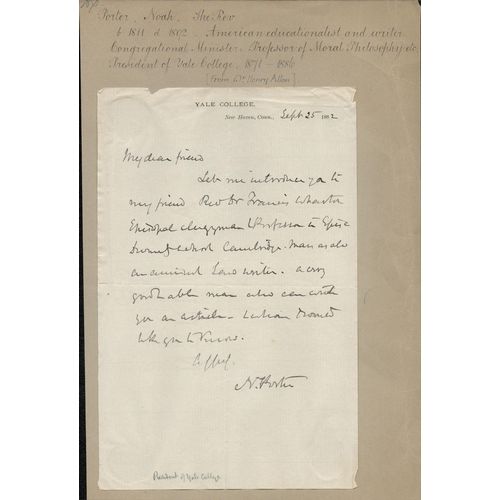 Porter, Noah, The Rev
b 1811 d 1892. American educationalist and writer
Congregational Minister. Professor of Moral Philosophy etc
President of Yale College. 1871 – 1886
[From Wm Henry Allon]
YALE COLLEGE,
New Haven, Conn., Sept 25 1882
My dear friend
Let me introduce you to
my friend Rev Dr Francis Wharton
Episcopal clergyman & Professor in Episc
Divinity School Cambridge. Mass also
an eminent Law writer. a very
good & able man who can write
you an article – whom I
like you to know.
N. Porter
President of Yale College